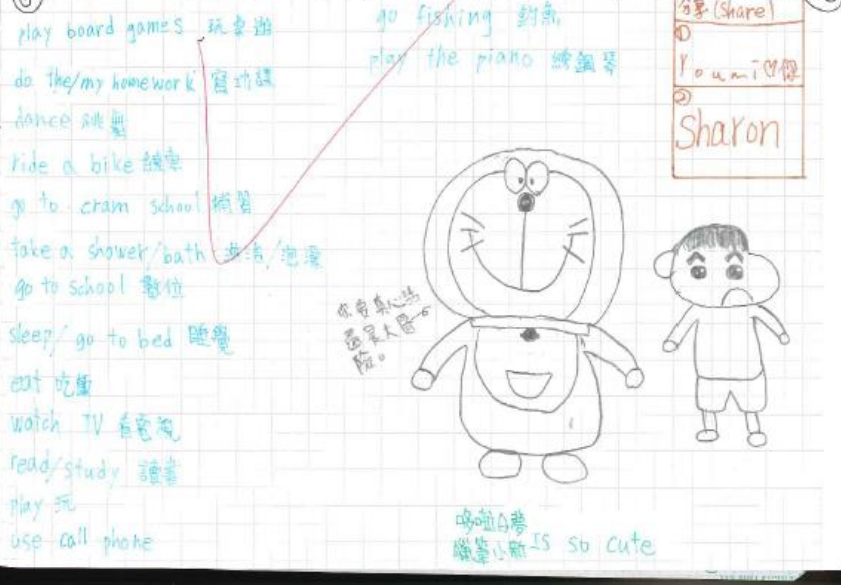 play board games 玩桌遊
do the/my homework 寫功課
dance 跳舞
ride a bike 騎車
go to cram school 補習
take a shower/bath 淋浴/泡澡
go to school
sleep/go to bed 睡覺
eat 吃飯
watch TV 看電視
read/study 讀書
play 玩
use call phone
go fishing 釣魚
play the piano 鋼琴
分享(share)
①
Youmi♡你
②
Sharon
你要真心話
還是大冒
險。
哆啦A夢
蠟筆小新 Is so cute